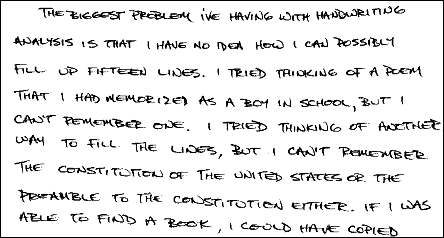 THE BIGGEST PROBLEM I'VE HAVING WITH HANDWRITING
ANALYSIS IS THAT I HAVE NO IDEA HOW I CAN POSSIBLY
FILL UP FIFTEEN LINES. I TRIED THINKING OF A POEM
THAT I HAD MEMORIZED AS A BOY IN SCHOOL, BUT I
CAN'T REMEMBER ONE. I TRIED THINKING OF ANOTHER
WAY TO FILL THE LINES, BUT I CAN'T REMEMBER
THE CONSTITUTION OF THE UNITED STATES OR THE
PREAMBLE TO THE CONSTITUTION EITHER. IF I WAS
ABLE TO FIND A BOOK, I COULD HAVE COPIED